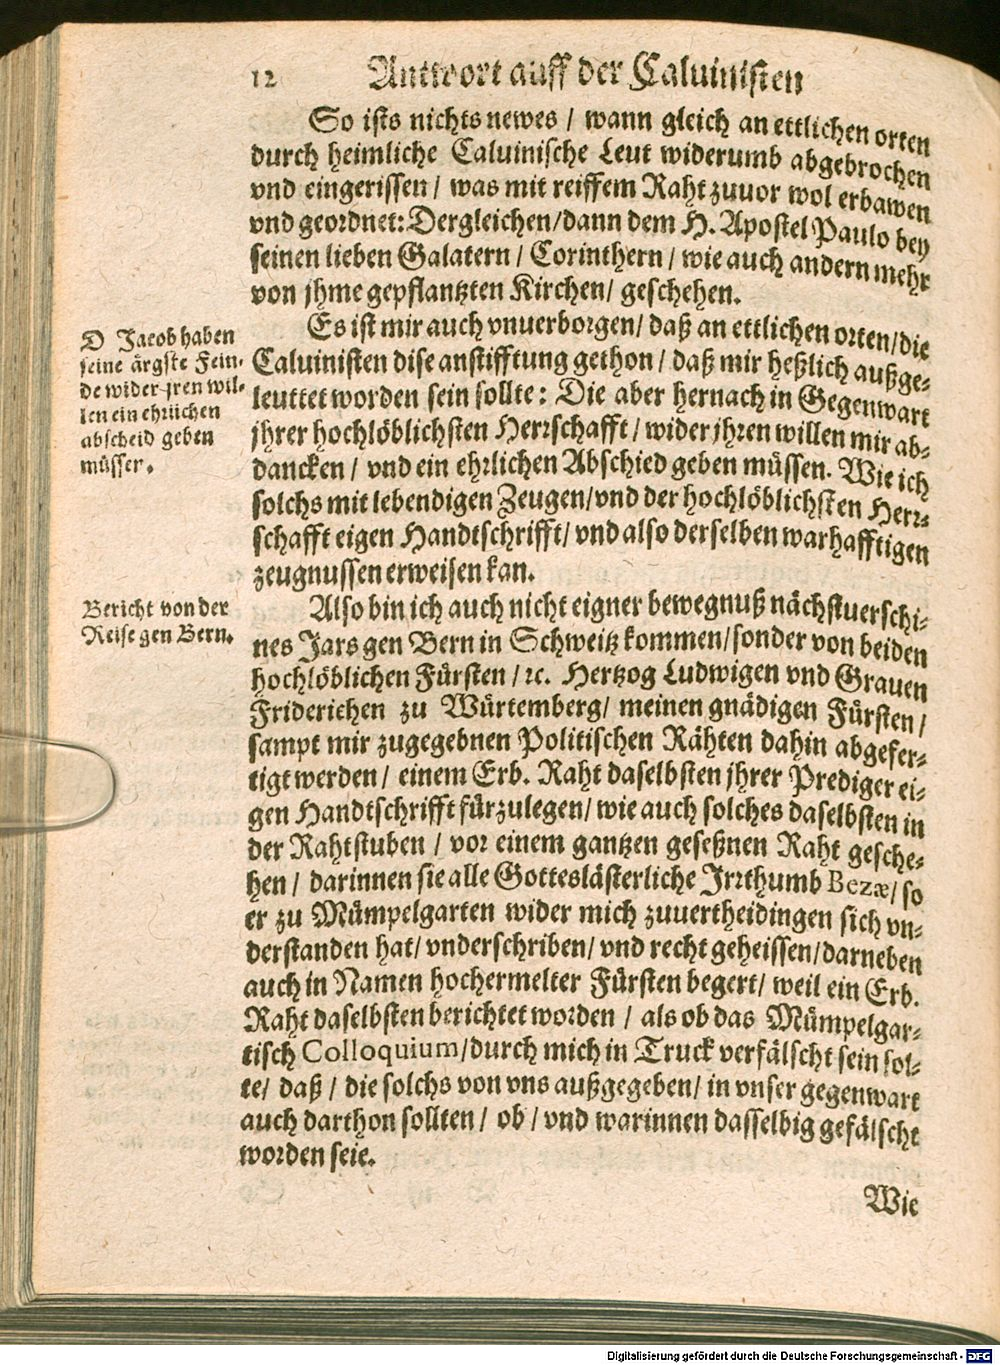 12 Antwort auff der Caluinisten
So ists nichts newes / wann gleich an ettlichen orten
durch heimliche Caluinische Leut widerumb abgebrochen
vnd eingerissen / was mit reiffem Raht zuuor wol erbawen
vnd geordnet: Dergleichen / dann dem H. Apostel Paulo bey
seinen lieben Galatern / Corinthern / wie auch andern mehr
von jhme gepflantzten Kirchen / geschehen.
Es ist mir auch vnuerborgen / daß an ettlichen orten / die
Caluinisten dise anstifftung gethon / daß mir heßlich außge-
leuttet worden sein sollte: Die aber hernach in Gegenwart
jhrer hochlöblichsten Herrschafft / wider jhren willen mir ab-
dancken / vnd ein ehrlichen Abschied geben müssen. Wie ich
solchs mit lebendigen Zeugen / vnd der hochlöblichsten Herr-
schafft eigen Handtschrifft / vnd also derselben warhafftigen
zeugnussen erweisen kan.
D Jacob haben
seine ärgste Fein-
de wider jren wil-
len ein ehrlichen
abscheid geben
müsser.
Also bin ich auch nicht eigner bewegnuß nächstuerschi-
nes Jars gen Bern in Schweitz kommen / sonder von beiden
hochlöblichen Fürsten / ꝛc. Hertzog Ludwigen vnd Grauen
Friderichen zu Würtemberg / meinen gnädigen Fürsten /
sampt mir zugegebnen Politischen Rähten dahin abgefer-
tigt werden / einem Erb. Raht daselbsten jhrer Prediger ei-
gen Handtschrifft fürzulegen / wie auch solches daselbsten in
der Rahtstuben / vor einem gantzen geseßnen Raht gesche-
hen / darinnen sie alle Gotteslästerliche Irrthumb Bezæ / so
er zu Mümpelgarten wider mich zuuertheidingen sich vn-
derstanden hat / vnderschriben / vnd recht geheissen / darneben
auch in Namen hochermelter Fürsten begert / weil ein Erb.
Raht daselbsten berichtet worden / als ob das Mümpelgar-
tisch Colloquium / durch mich in Truck verfälscht sein sol-
te / daß / die solchs von vns außgegeben / in vnser gegenwart
auch darthon sollten / ob / vnd warinnen dasselbig gefälscht
worden seie.
Bericht von der
Reise gen Bern.
Wie
Digitalisierung gefördert durch die Deutsche Forschungsgemeinschaft - DFG